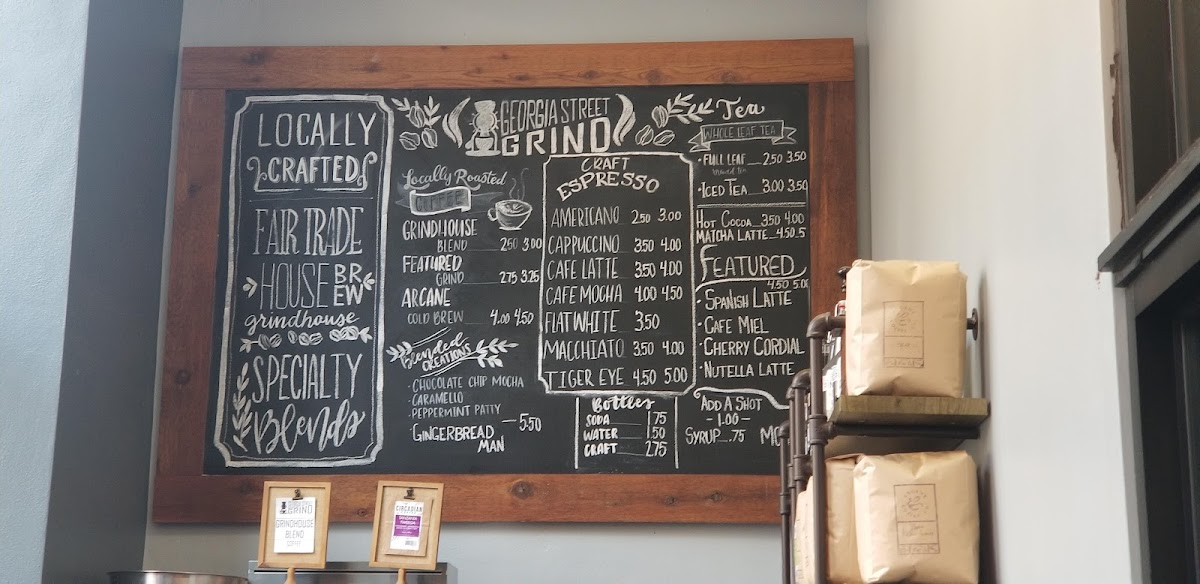 LOCALLY
CRAFTED
FAIR TRADE
HOUSE BREW
grindhouse
SPECIALTY
Blends
GEORGIA STREET
GRIND
Locally Roasted
COFFEE
GRINDHOUSE
BLEND 2.50 3.00
FEATURED
GRIND 2.75 3.25
ARCANE
COLD BREW 4.00 4.50
Blended
CREATIONS
· CHOCOLATE CHIP MOCHA
· CARAMELLO
· PEPPERMINT PATTY
5.50
· GINGERBREAD
MAN
CRAFT
ESPRESSO
AMERICANO 2.50 3.00
CAPPUCCINO 3.50 4.00
CAFE LATTE 3.50 4.00
CAFE MOCHA 4.00 4.50
FLAT WHITE 3.50
MACCHIATO 3.50 4.00
TIGER EYE 4.50 5.00
Bottles
SODA 1.75
WATER 1.50
CRAFT 2.75
Tea
WHOLE LEAF TEA
· FULL LEAF 2.50 3.50
brewed tea
· ICED TEA 3.00 3.50
HOT COCOA 3.50 4.00
MATCHA LATTE 4.50 5
FEATURED
4.50 5.00
· SPANISH LATTE
· CAFE MIEL
· CHERRY CORDIAL
· NUTELLA LATTE
ADD A SHOT
- 1.00 -
SYRUP .75
GRIND
GRINDHOUSE
BLEND
COFFEE
CIRCADIAN